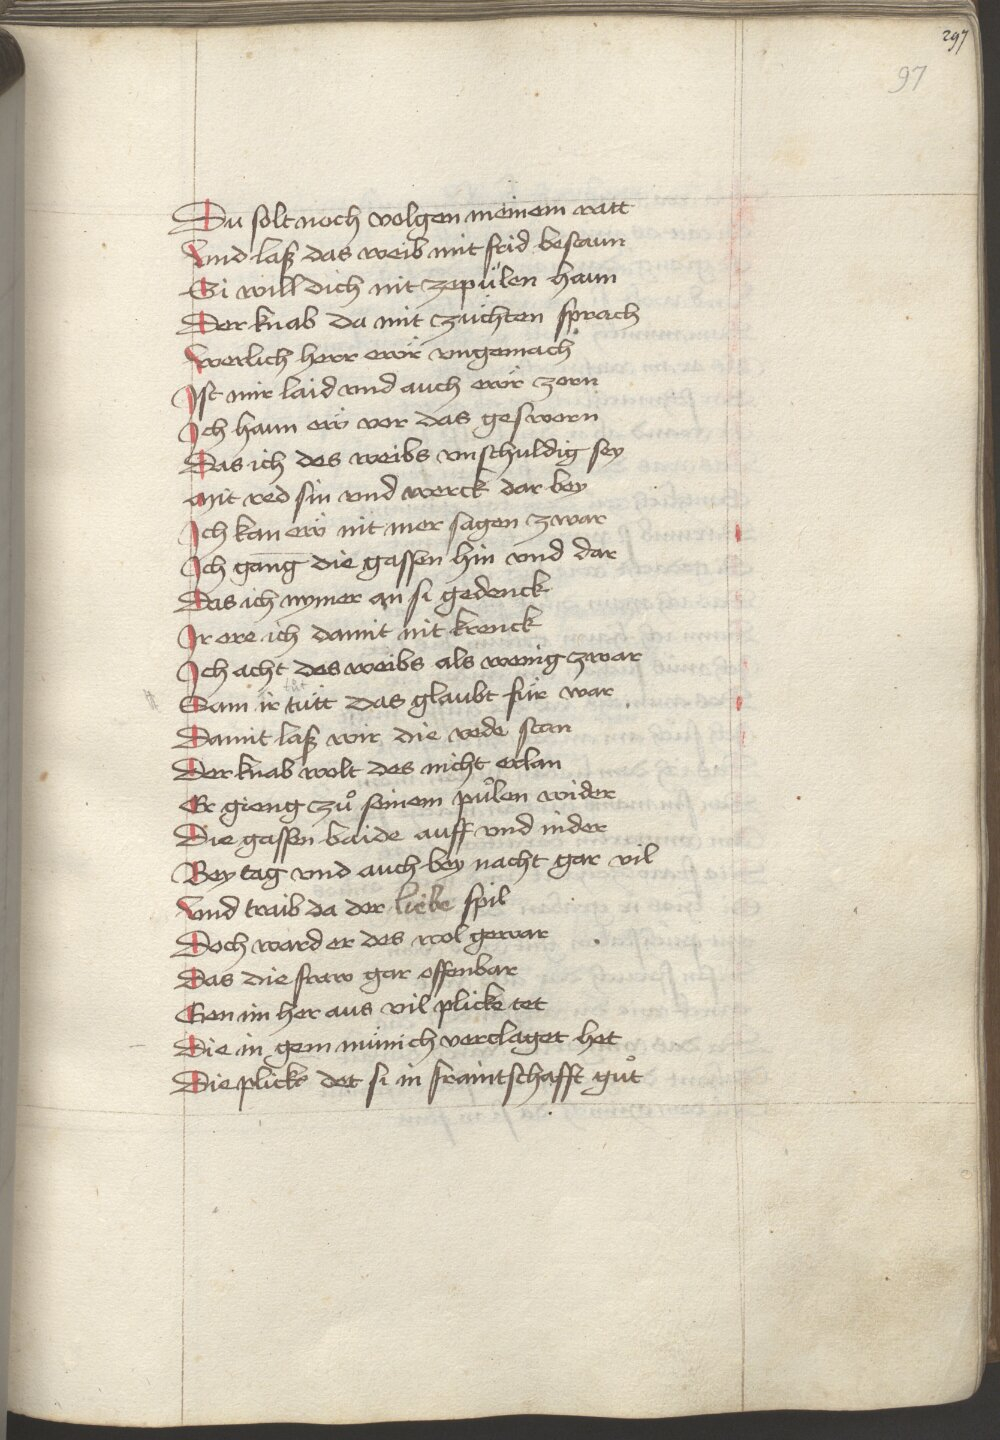 297
97
Du solt noch volgen meinem ratt
Vnd laß das weib mit frid bestaun
Si will dich nit ze pülen haun
Der knab da mit züchten sprach
Werlich herr ewr vngemach
Ist mir laid vnd auch ewr zorn
Ich haun ew vor das geswern
Das ich des weibs vnschuldig sey
Mit red sin vnd werck dar bey
Ich kan ew nit mer sagen zwar
Ich gang die gassen hin vnd dar
Das ich nymer an si gedenck
Ir ere ich damit nit krenck
Ich acht des weibs als wenig zwar
Sam ir tütt das glaubt für war
Damit laß wir die rede stan
Der knab wolt des nicht erlan
Er gieng zů seinem půlen wider
Die gassen baide auff vnd nider
Bey tag vnd auch bey nacht gar vil
Vnd traib da der liebe spil
Doch ward er des wol gewar
Das die fraw gar offenbar
Gen im her aus vil plicke tet
Die in gem münich verclaget het
Die plick det si in fraintschafft gůt